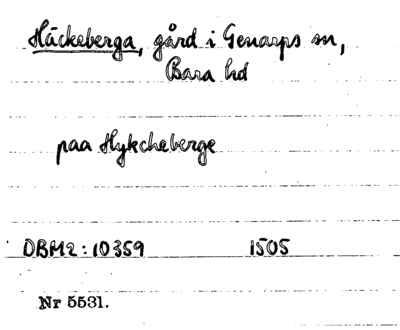 Häckeberga, gård i Genarps sn,
Bara hd
paa Hykcheberge
DBM2:10359 1505
Nr 5531.